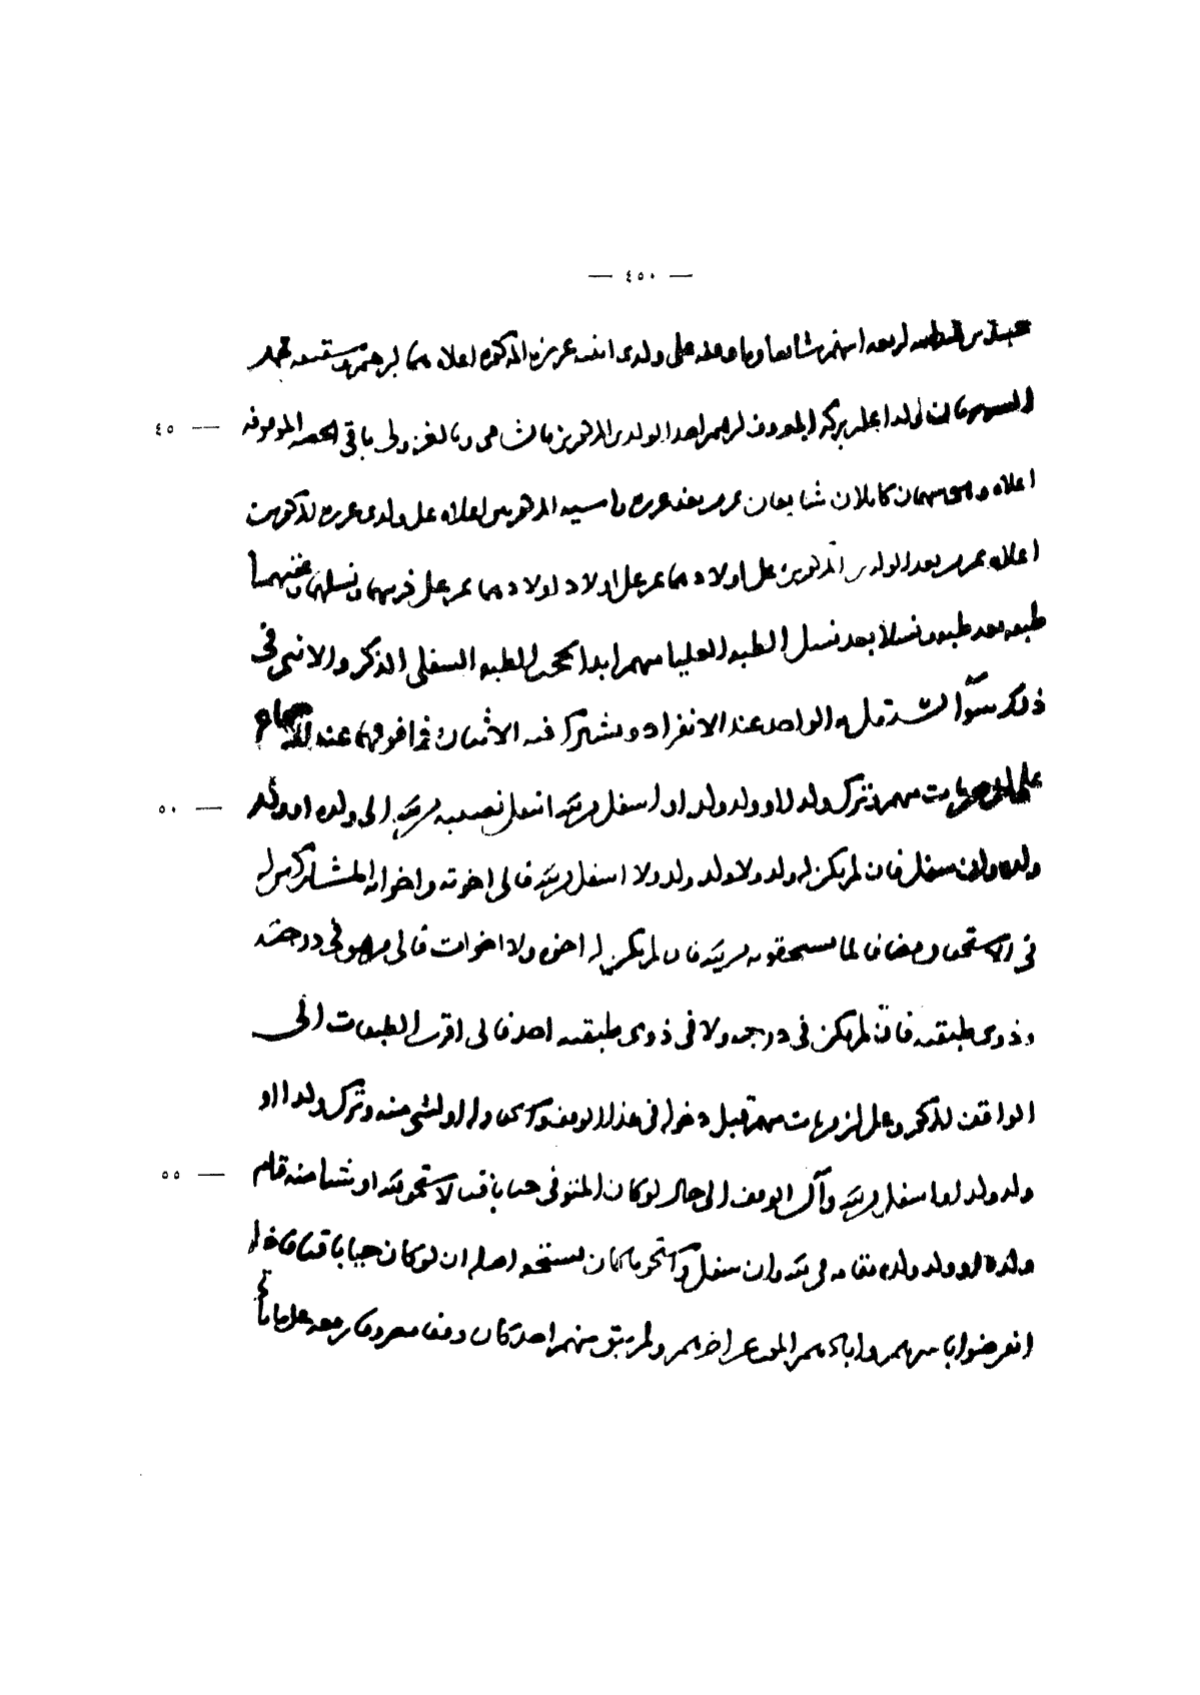 — ٤٥٠ —
اربعة اسهم شايعا على ولدى ابنته عزيزه المذكوره اعلاه هما ابرهيم
٤٥ — بركه المعروف ابرهيم احد الولدين المذكورين باقى الحصه الموقوفه
اعلاه وهى سهمان كاملان شايعان ثم من بعد عزيزه المذكورين اعلاه على ولدى عزيزه المذكورين
اعلاه ثم من بعد الولدين المذكورين على اولادهما ثم على اولاد اولادهما ثم على ذريتهما ونسلهما وعقبهما
طبقه بعد طبقه ونسلا بعد نسل الطبقه العليا منهم ابدا تحجب الطبقه السفلى الذكر والانثى فى
ذلك سوآ يستقل به الواحد عند الانفراد ويشترك فيه الاثنان فما فوقهما عند الاجتماع
٥٠ — على ان من مات منهم وترك ولدا او ولد ولد او اسفل من ذلك انتقل نصيبه من ذلك الى ولده او ولد
ولده وان سفل فان لم يكن له ولد ولا ولد ولد ولا اسفل من ذلك فالى اخوته واخواته المشاركين له
فى الاستحقاق مضافا لما يستحقونه من ذلك فان لم يكن له اخوه ولا اخوات فالى من هو فى درجته
وذوى طبقته فان لم يكن فى درجته ولا فى ذوى طبقته احد فالى اقرب الطبقات الى
الواقف المذكور وعلى ان من مات منهم قبل دخوله فى هذا الوقف واستحقاقه او لشى منه وترك ولدا او
٥٥ — ولد ولد او اسفل من ذلك وآل الوقف الى حال لو كان المتوفى حيا باقيا لاستحق ذلك او شيا منه قام
ولده او ولد ولده مقامه فى ذلك وان سفل واستحق ما كان يستحقه اصله ان لو كان حيا باقيا فاذا
انقرضوا باسرهم وابادهم الموت عن اخرهم ولم يبق منهم احد كان وقفا مصروفا ريعه على